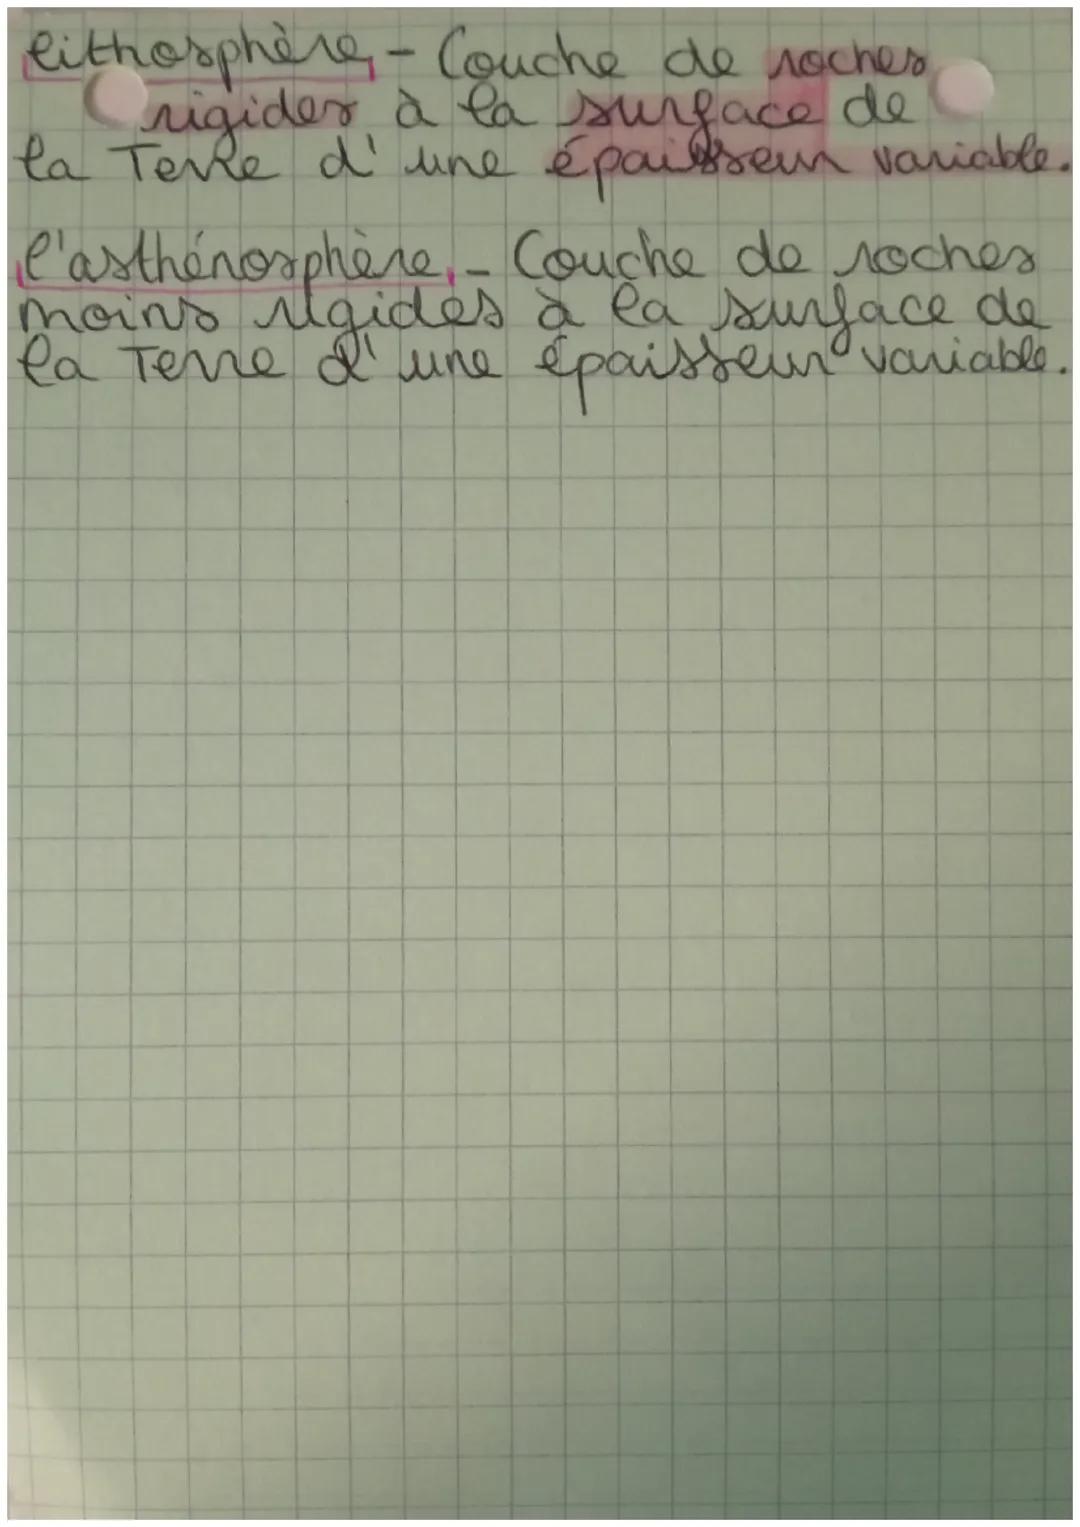 lithosphère, - Couche de roches
rigides à la surface de
la Terre d'une épaisseur variable.
l'asthénosphère, - Couche de roches
moins rigides à la surface de
la Terre d'une épaisseur variable.